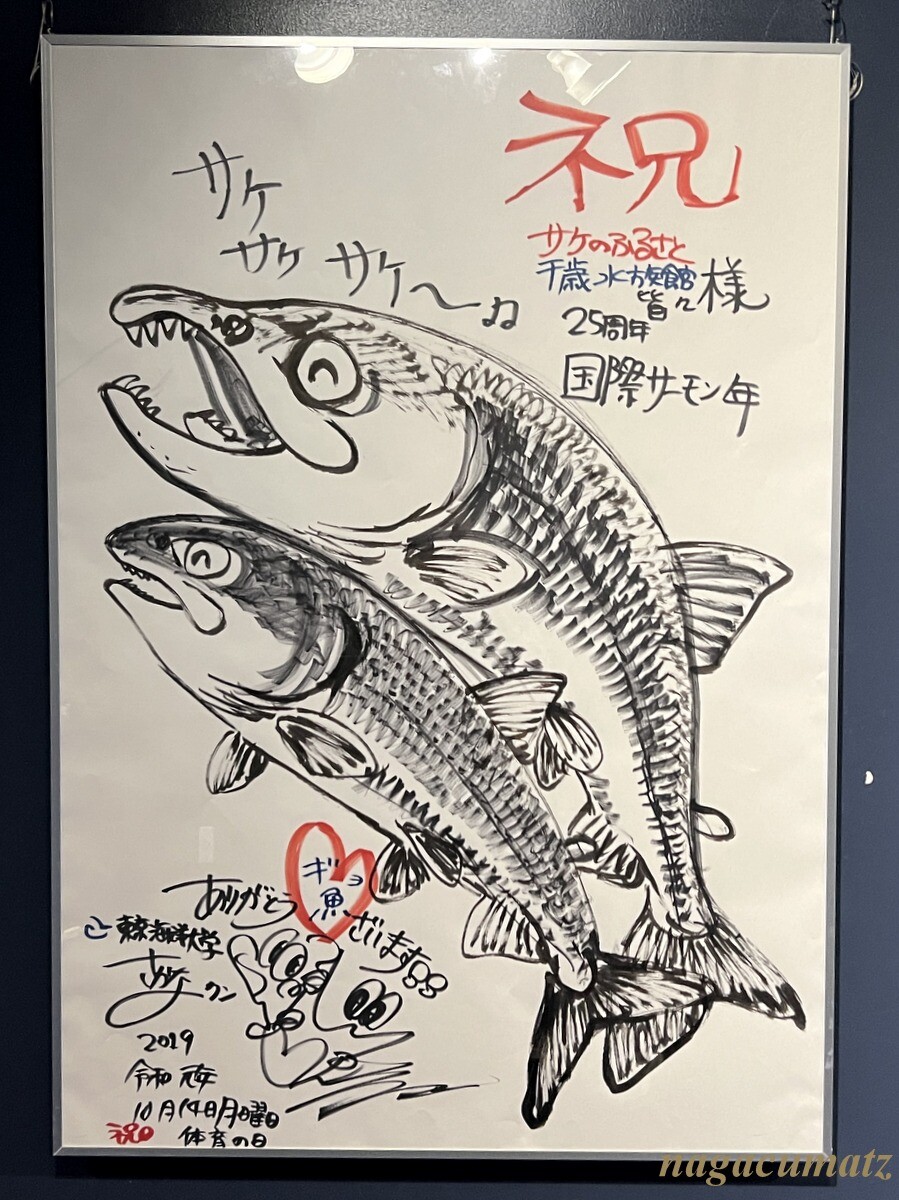 祝
サケのふるさと
千歳水族館
皆々様
25周年
国際サーモン年
サケ
サケ サケ〜♫
ありがとうギョ魚ざいます
東京海洋大学
さかなクン
2019
令和元年
10月14日月曜日
祝 体育の日
nagacumatz